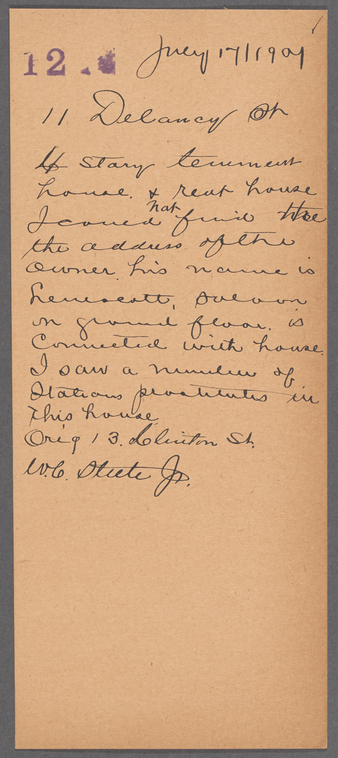 12
July 17/1901
11 Delancy St
4 Story tenement
house. & reat house
I coued not find the
the address of the
owner. his name is
saloon
on ground floor. is
Connected with house.
I saw a number of
Stations prostitutes in
this house
Orig 13. Clinton St.
W.C. Steele Jr.